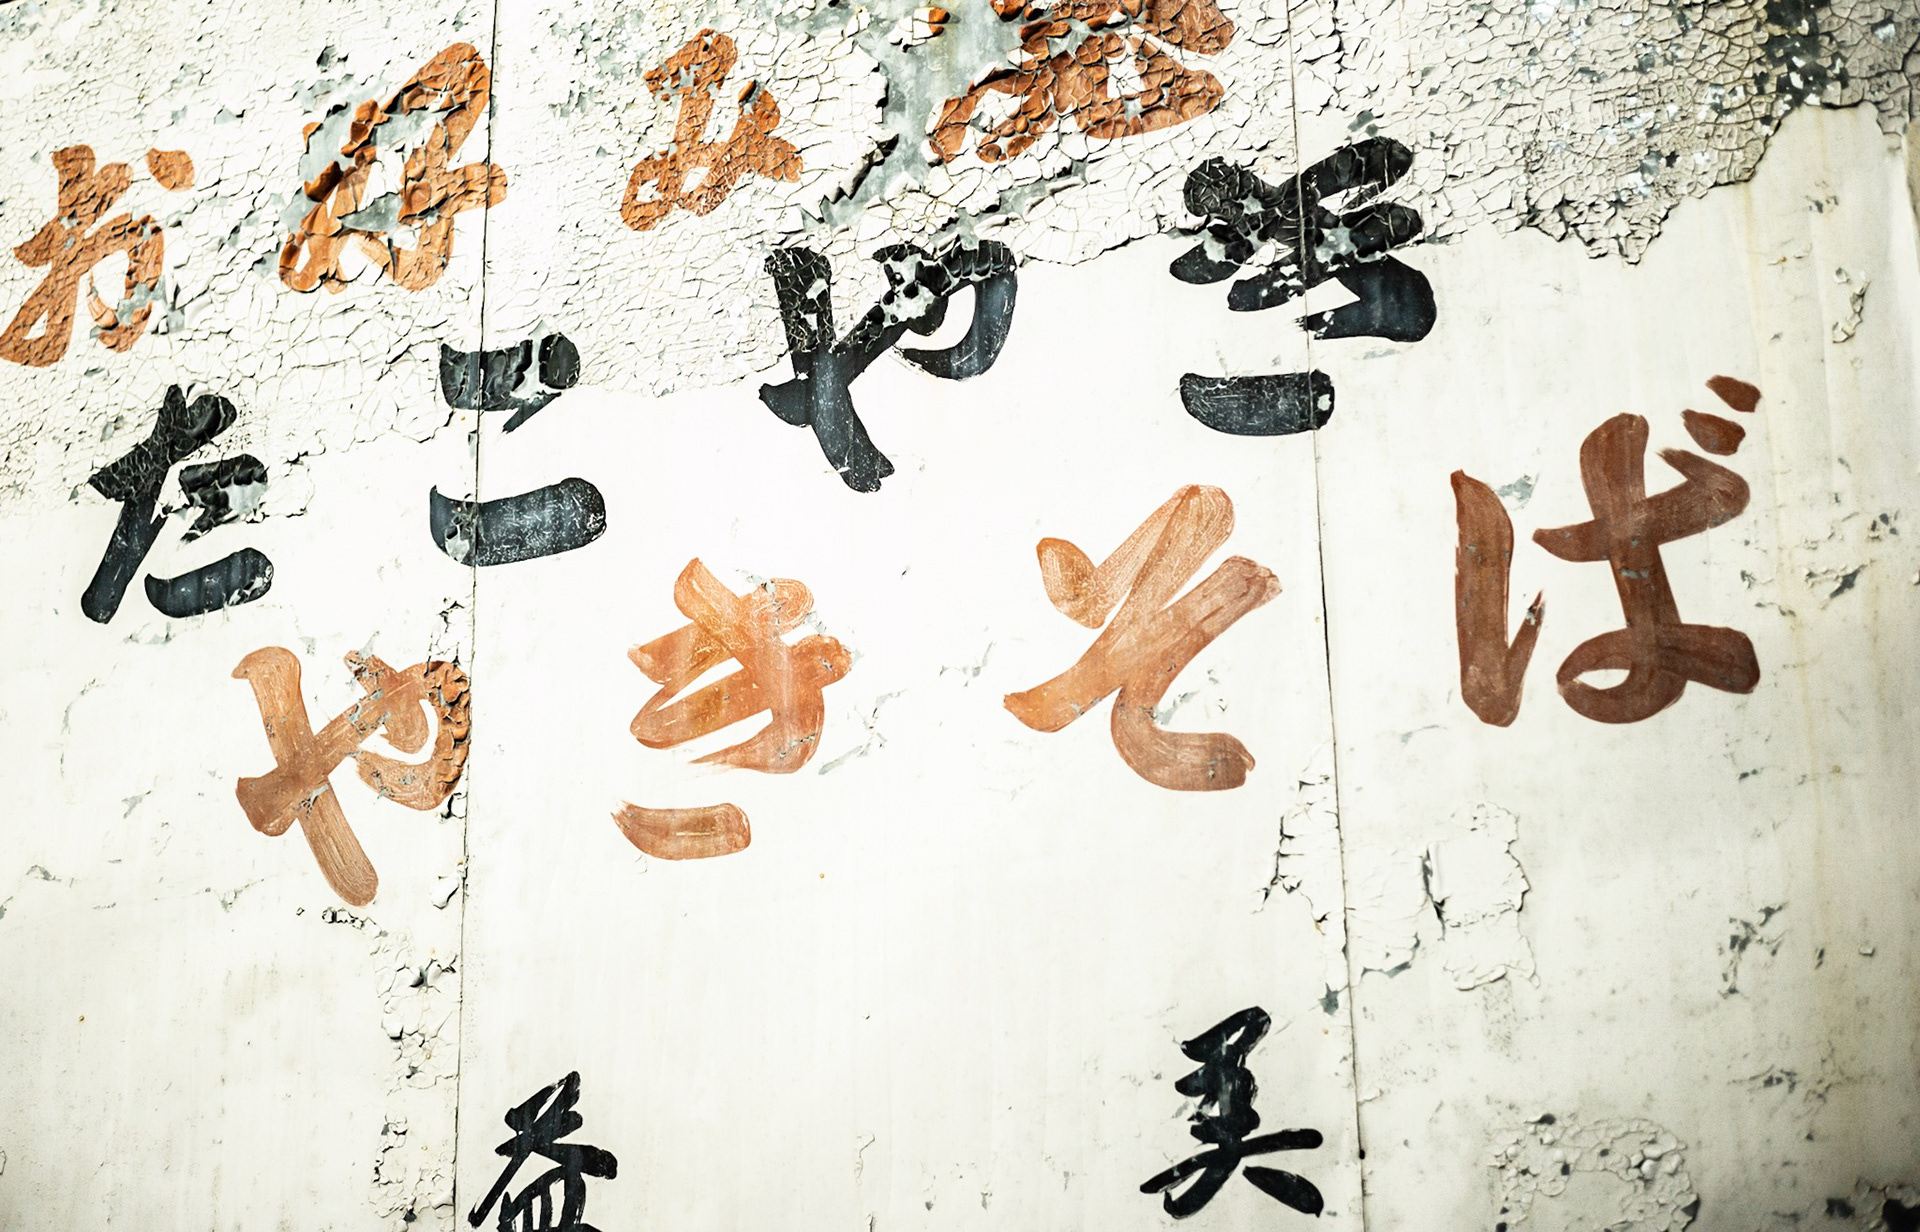 お好み
たこやき
やきそば
益美